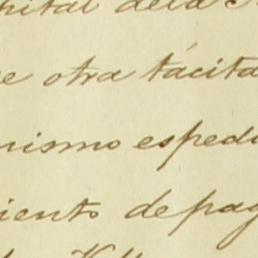 pital dela
e otra tácita
nismo espedi
iento de pag